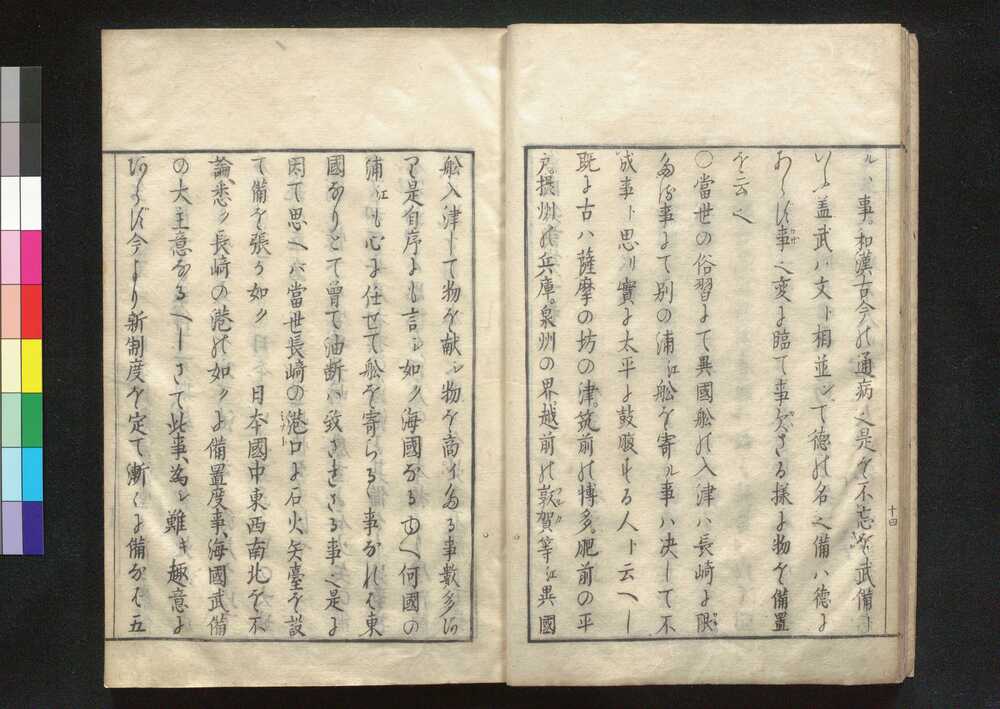 ルハ事。和漢古今の通病也是を不忘を武備と
いふ盖武ハ文ト相並ンで徳の名也備ハ徳に
あらず事也変に臨て事かざる様に物を備置
を云也
○當世の俗習にて異國舩の入津ハ長崎に限
たる事にて別の浦江舩を寄ル事ハ决して不
成事ト思リ實に太平に鼓腹する人ト云へし
既に古ハ薩摩の坊の津。筑前の博多。肥前の平
戸。摂州の兵庫。泉州の界越前の敦賀等江異國
舩入津して物を献シ物を商イたる事数多有
て是自序にも言シ如ク海國なるゆへ何國の
浦江も心に任せて舩を寄らるゝ事なれは東
國なりとて曽て油断ハ致さゝさる事也是に
因て思へハ當世長崎の港口に石火矢臺を設
て備を張るか如ク日本國中東西南北を不
論、悉ク長崎の港の如クに備置度事、海國武備
の大主意なるへしさて此事、為シ難キ趣意に
あらず今より新制度を定て漸々に備なは五
十四